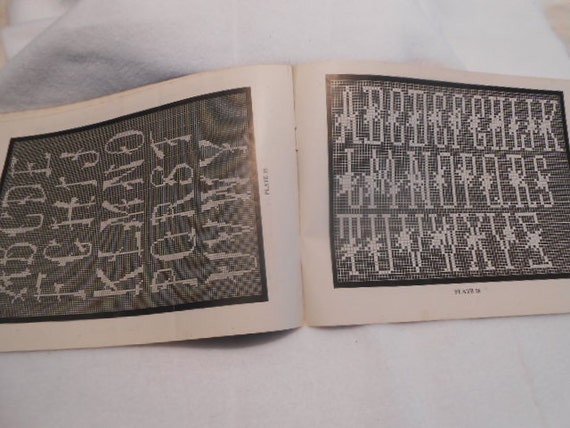 ABCDE
FGHIJ
KLMNO
PQRST
UVWY
PLATE
ABCDEFGHIJK
LMNOPQRS
TUVWXYZ
PLATE